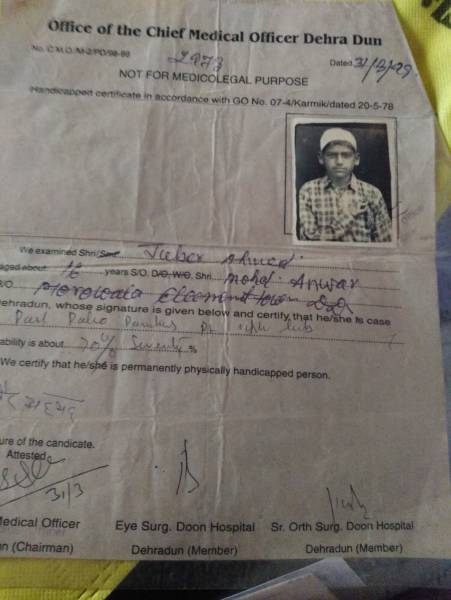 Office of the Chief Medical Officer Dehra Dun
No. C.M.O./M-2/PD/98-99 2973 Dated 31/3/99
NOT FOR MEDICOLEGAL PURPOSE
Handicapped certificate in accordance with GO No. 07-4/Karmik/dated 20-5-78
We examined Shri/Smt. Juber Ahmed
aged about 16 years S/O. D/O, W/O. Shri Mohd. Anwar
Morowala
Dehradun, whose signature is given below and certify that he/she is case
Post Polio
ability is about 70% Seventy %
We certify that he/she is permanently physically handicapped person.
ure of the candicate.
Attested
31/3
Medical Officer Eye Surg. Doon Hospital Sr. Orth Surg. Doon Hospital
n (Chairman) Dehradun (Member) Dehradun (Member)